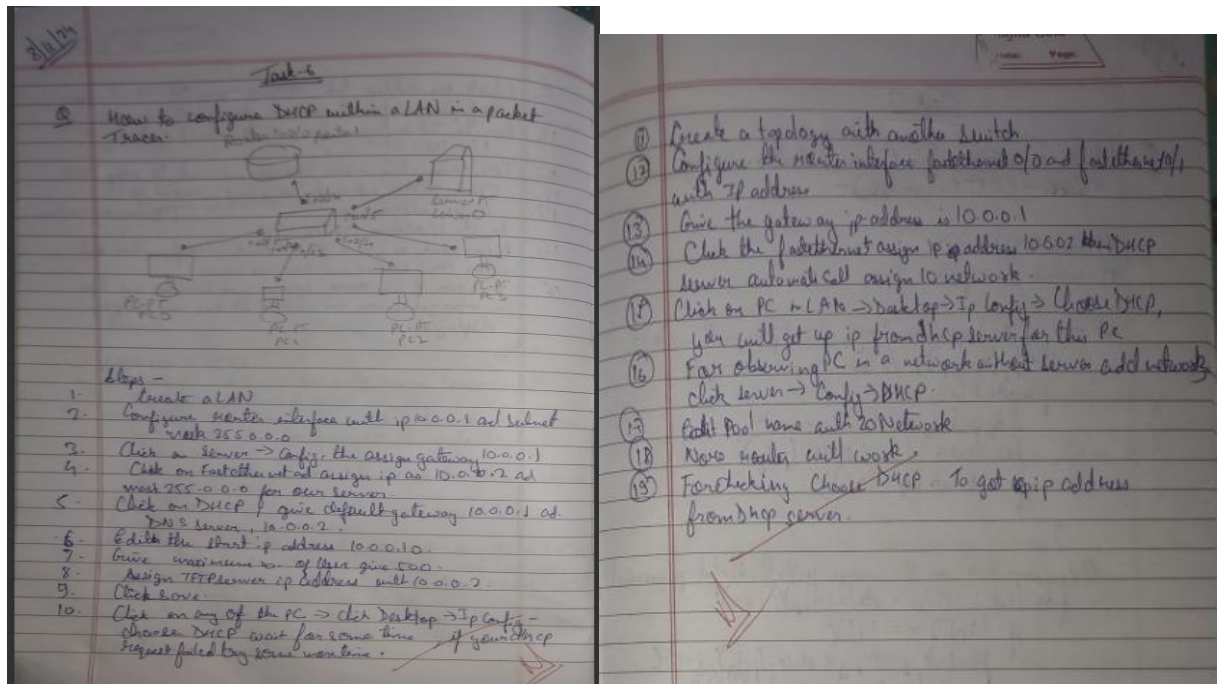 8/11/24
Task-6
Q How to configure DHCP within a LAN in a packet
Tracer.
Server-PT
PC-PT
PC-PT
PC1
PC-PT
PC2
PC-PT
PC3
Steps -
1. Create a LAN
2. Configure router interface with ip 10.0.0.1 ad subnet
mask 255.0.0.0
3. Click on server → Config. the assign gateway 10.0.0.1
4. Click on Fastethernet ad assign ip as 10.0.0.2 ad
mask 255.0.0.0 for our server.
5. Click on DHCP & give default gateway 10.0.0.1 ad.
DNS server, 10.0.0.2.
6. Edit the start ip address 10.0.0.10.
7. Give maximum no. of User give 500.
8. Assign TFTP server ip address with 10.0.0.2.
9. Click save.
10. Click on any of the PC → click Desktop → Ip config -
choose DHCP wait for some time, if your dhcp
request failed try some more time.
11 Create a topology with another switch
12 Configure the router interface fastethernet 0/0 and fastethernet 0/1
with Ip address
13 Give the gateway ip address is 10.0.0.1
14 Click the fastethernet assign ip address 10.0.02 then DHCP
server automatically assign 10 network.
15 Click on PC in LAN → Desktop → Ip Config → Choose DHCP,
you will get up ip from dhcp server for this Pc
16 For observing PC in a network without server add network
click server → Config → DHCP.
17 Edit Pool name with 20 Network
18 Now router will work.
19 For checking Choose DHCP To get ip address
from Dhcp server.